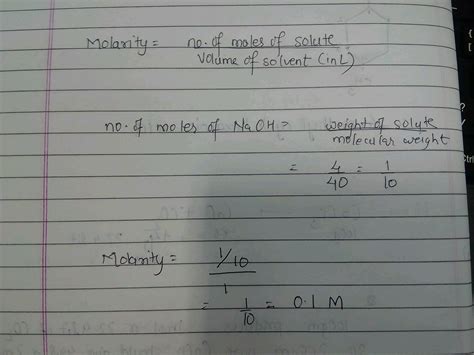 Molarity = no. of moles of solute
Volume of solvent (in L)
no. of moles of NaOH = weight of solute
molecular weight
= 4/40 = 1/10
Molarity = 1/10
1
= 1/10 = 0.1 M